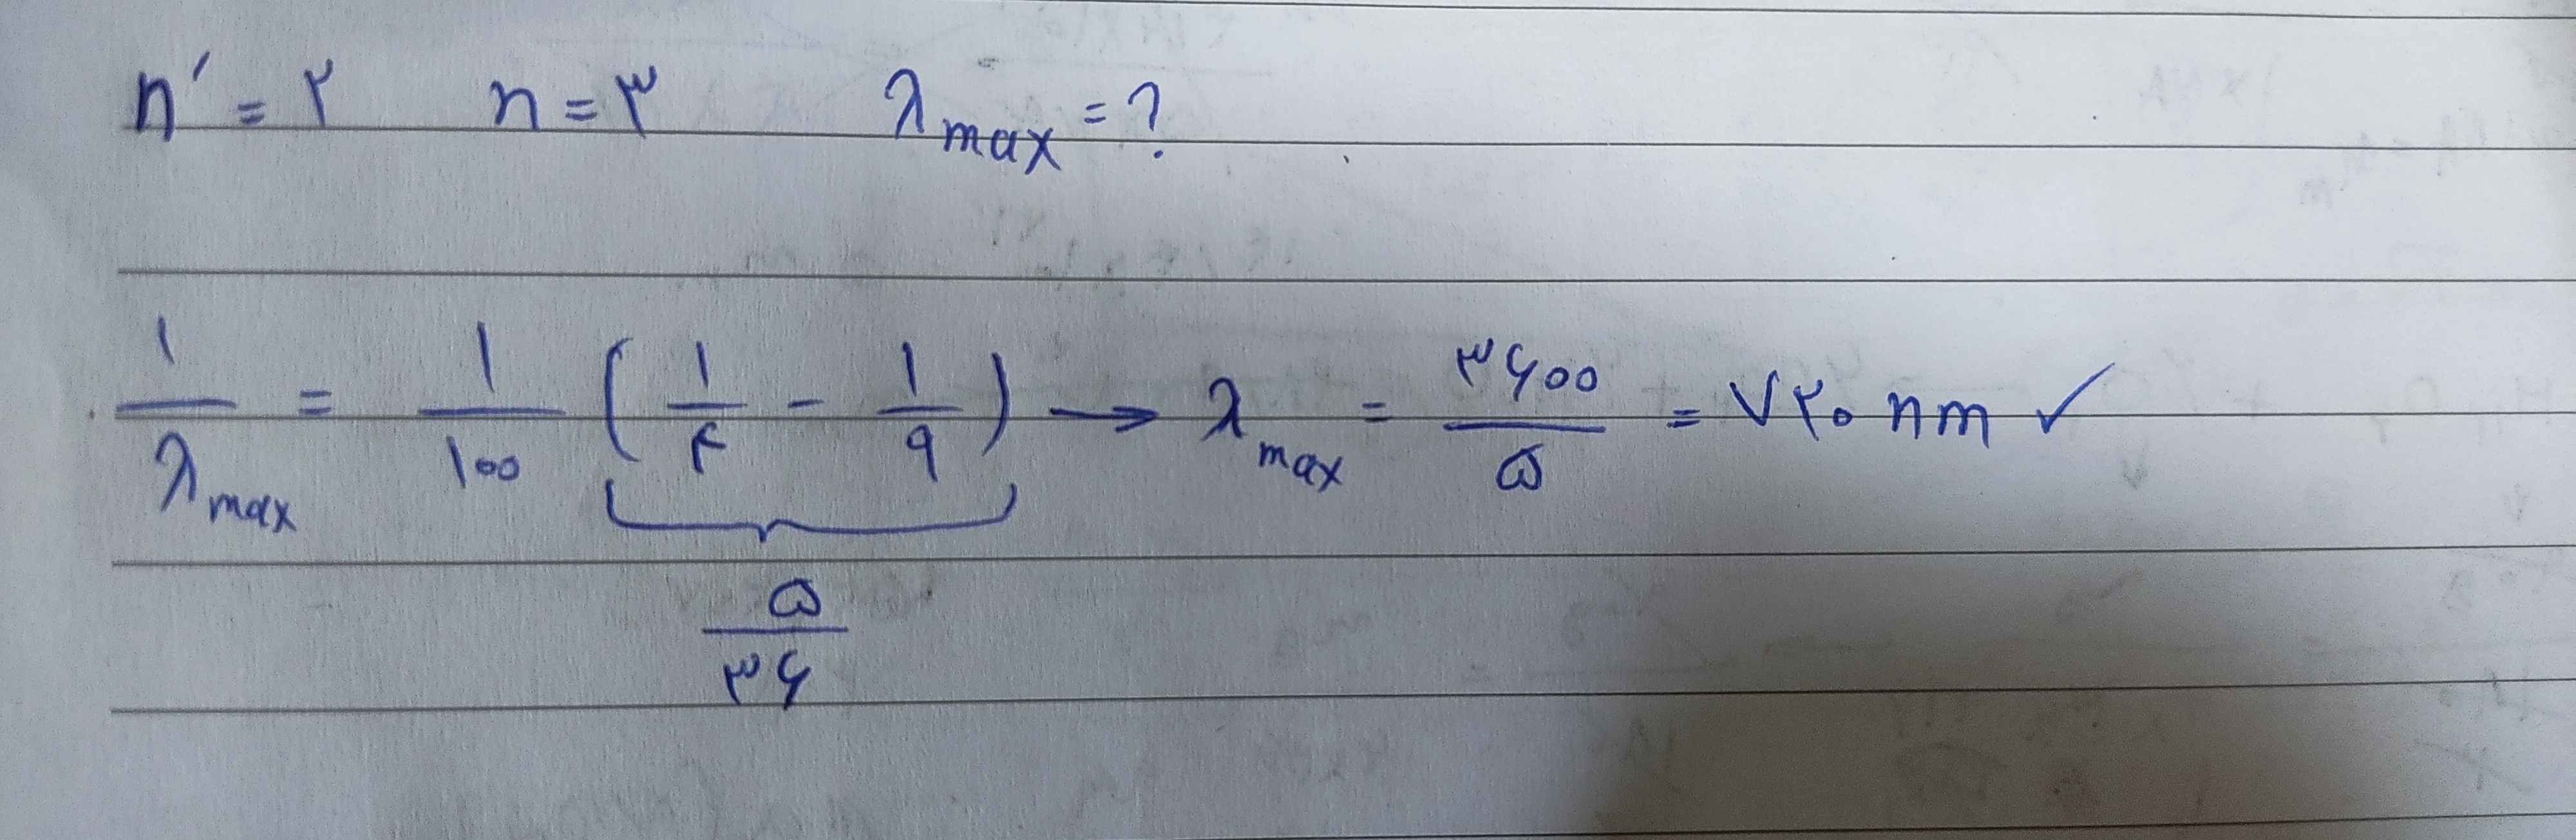 n' = ۲ n = ۳ λmax = ?
۱/λmax = ۱/۱۰۰ (۱/۴ - ۱/۹) → λmax = ۳۶۰۰/۵ = ۷۲۰ nm ✓
۵/۳۶